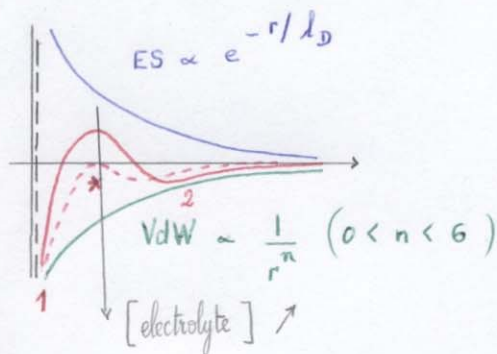 ES ∝ e^{-r/λ_D}
2
VdW ∝ 1/r^n (0 < n < 6)
1
[electrolyte] ↗